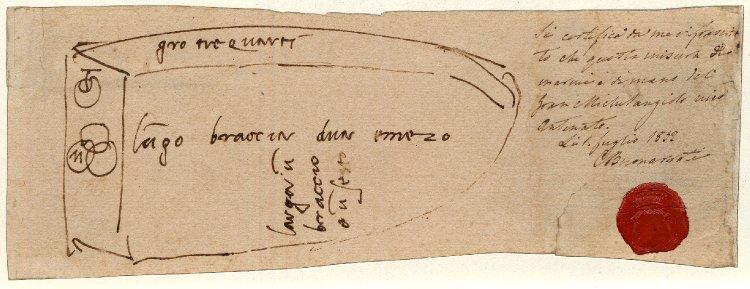 gro tre quarti
lūgo braccia dua e mezo
largo ū
braccio
e ū sesto
Si certifica da me infrascrit
to che questa misura di
marmi è di mano del
gran Michelangiolo mio
Antenato.
Li 1. luglio 1832
C Buonarroti